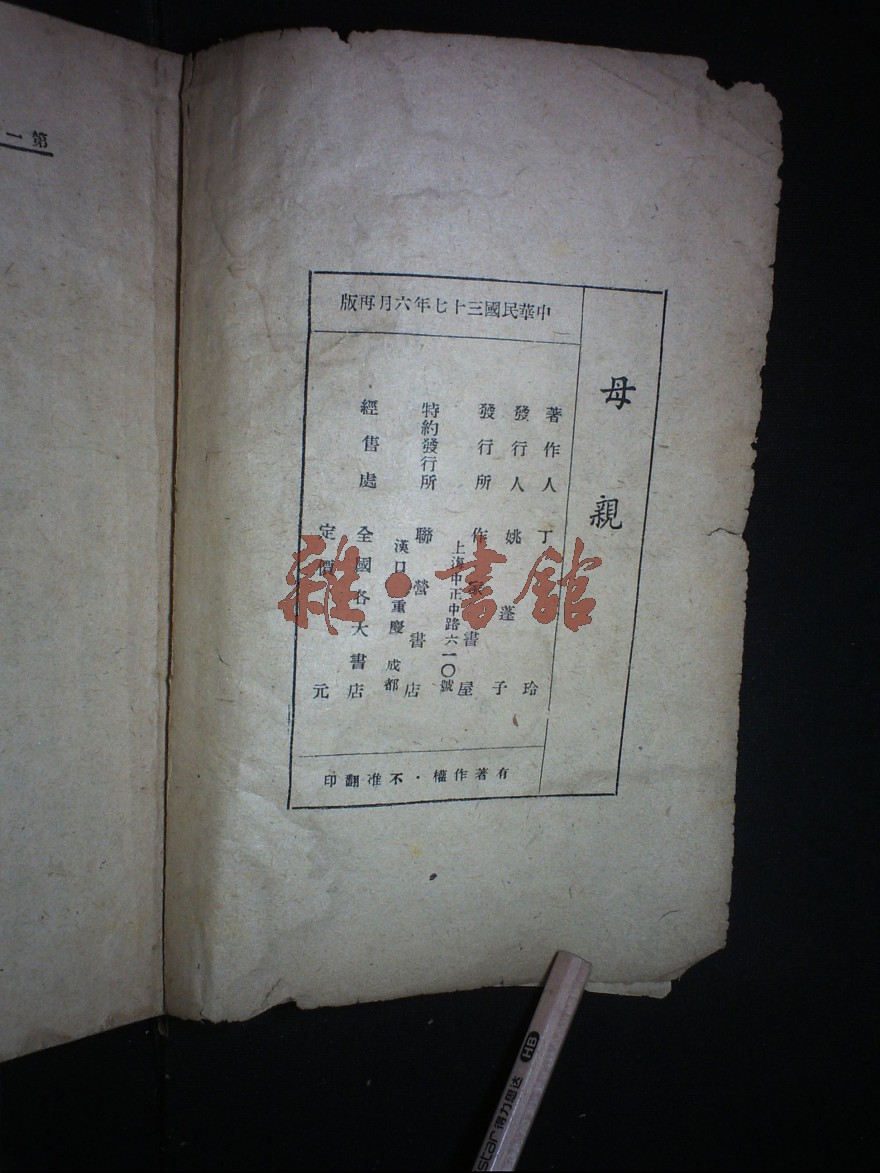 第一
母親
中華民國三十七年六月再版
著作人 丁玲
發行人 姚蓬子
發行所 作家書屋
上海中正中路六一〇號
特約發行所 聯營書店
漢口 重慶 成都
經售處 全國各大書店
定價 元
有著作權·不准翻印
雜·書館
HB
得力思达
star